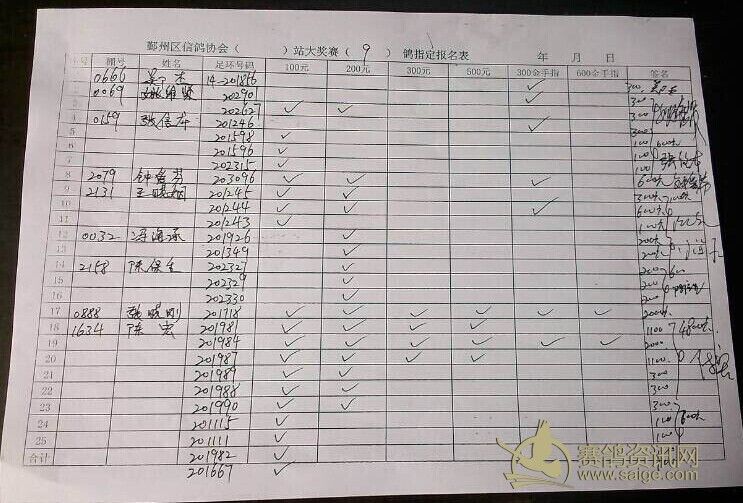 鄞州区信鸽协会（ ）站大奖赛（ 9 ）鸽指定报名表 年 月 日
序号 棚号 姓名 足环号码 100元 200元 300元 500元 300金手指 600金手指 签名
0666 14-201866 ✓ 300
0069 20290 ✓ 300
202627 ✓ ✓ 300
4 0159 张信本 201246 ✓ 300
5 201598 ✓ 100
6 201596 ✓ 100
7 202315 ✓ 100
8 2079 203096 ✓ ✓ ✓ 600
9 2131 201245 ✓ ✓ 300
10 201244 ✓ ✓ ✓ 600
11 201243 ✓ 100
12 0032 201926 ✓ 200
13 201349 ✓ 200
14 2158 陈保 202327 ✓ 200
15 202329 ✓ 200
16 202330 ✓ 200
17 0888 张晓刚 201718 ✓ ✓ ✓ ✓ ✓ ✓ 2000
18 1634 陈宏 201981 ✓ ✓ ✓ ✓ 1100
19 201984 ✓ ✓ ✓ ✓ ✓ ✓ 2000
20 201987 ✓ ✓ ✓ ✓ 1100
21 201989 ✓ ✓ 300
22 201988 ✓ ✓ 300
23 201990 ✓ ✓ 300
24 201115 ✓ 100
25 201111 ✓ 100
合计 201982 ✓
201667 ✓
赛鸽资讯网
www.saige.com